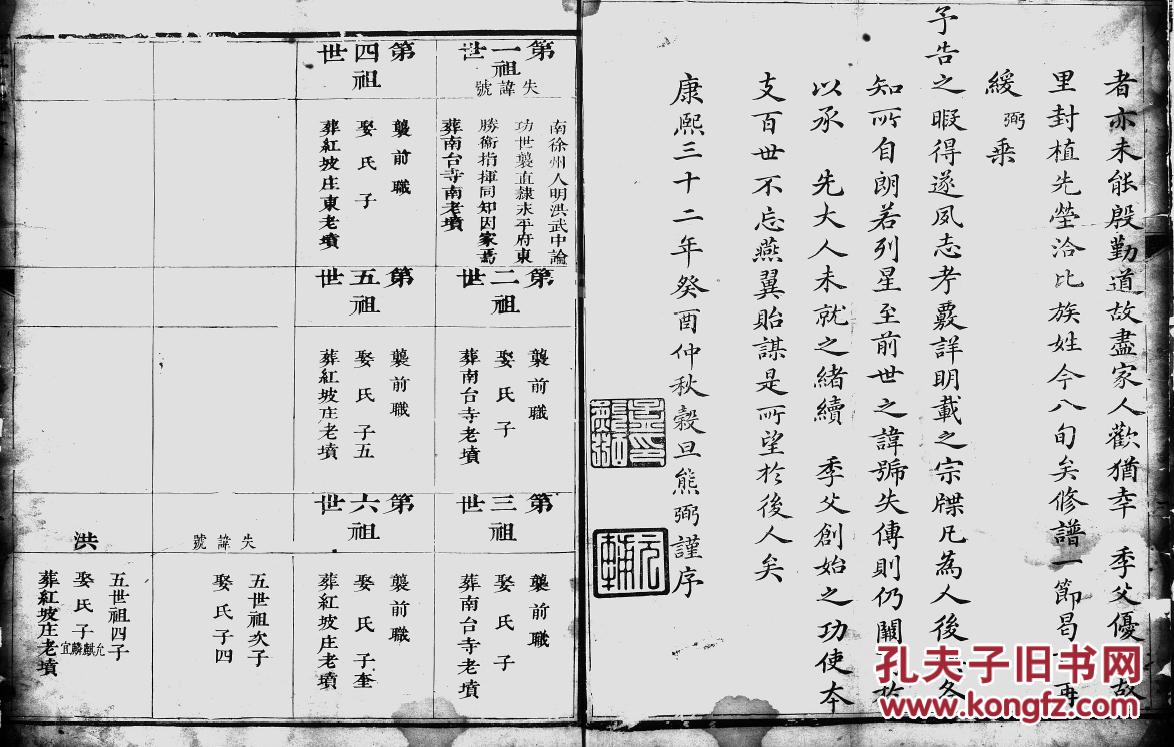 者亦未能殷勤道故盡家人歡猶幸 季父優
里封植先塋洽比族姓今八旬矣修譜一節曷
緩弼乘
予告之暇得遂夙志考覈詳明載之宗牒凡為人後
知所自朗若列星至前世之諱號失傳則仍闕
以承 先大人未就之緒續 季父創始之功使本
支百世不忘燕翼貽謀是所望於後人矣
康熙三十二年癸酉仲秋穀旦熊弼謹序
第一世祖
失諱號
南徐州人明洪武中論
功世襲直隸永平府東
勝衛指揮同知因家焉
葬南台寺南老墳
第二世祖
襲前職
娶氏子
葬南台寺老墳
第三世祖
襲前職
娶氏子
葬南台寺老墳
第四世祖
襲前職
娶氏子
葬紅坡庄東老墳
第五世祖
襲前職
娶氏子五
葬紅坡庄老墳
第六世祖
襲前職
娶氏子奎
葬紅坡庄老墳
失諱號
五世祖次子
娶氏子四
洪
五世祖四子
娶氏子允麒麟宜
葬紅坡庄老墳
孔夫子旧书网
www.kongfz.com